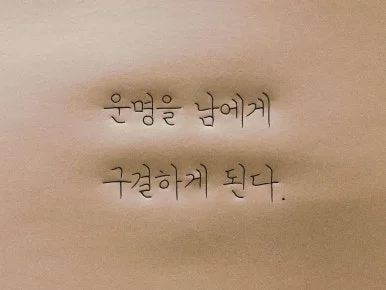 운명을 남에게
구결하게 된다.